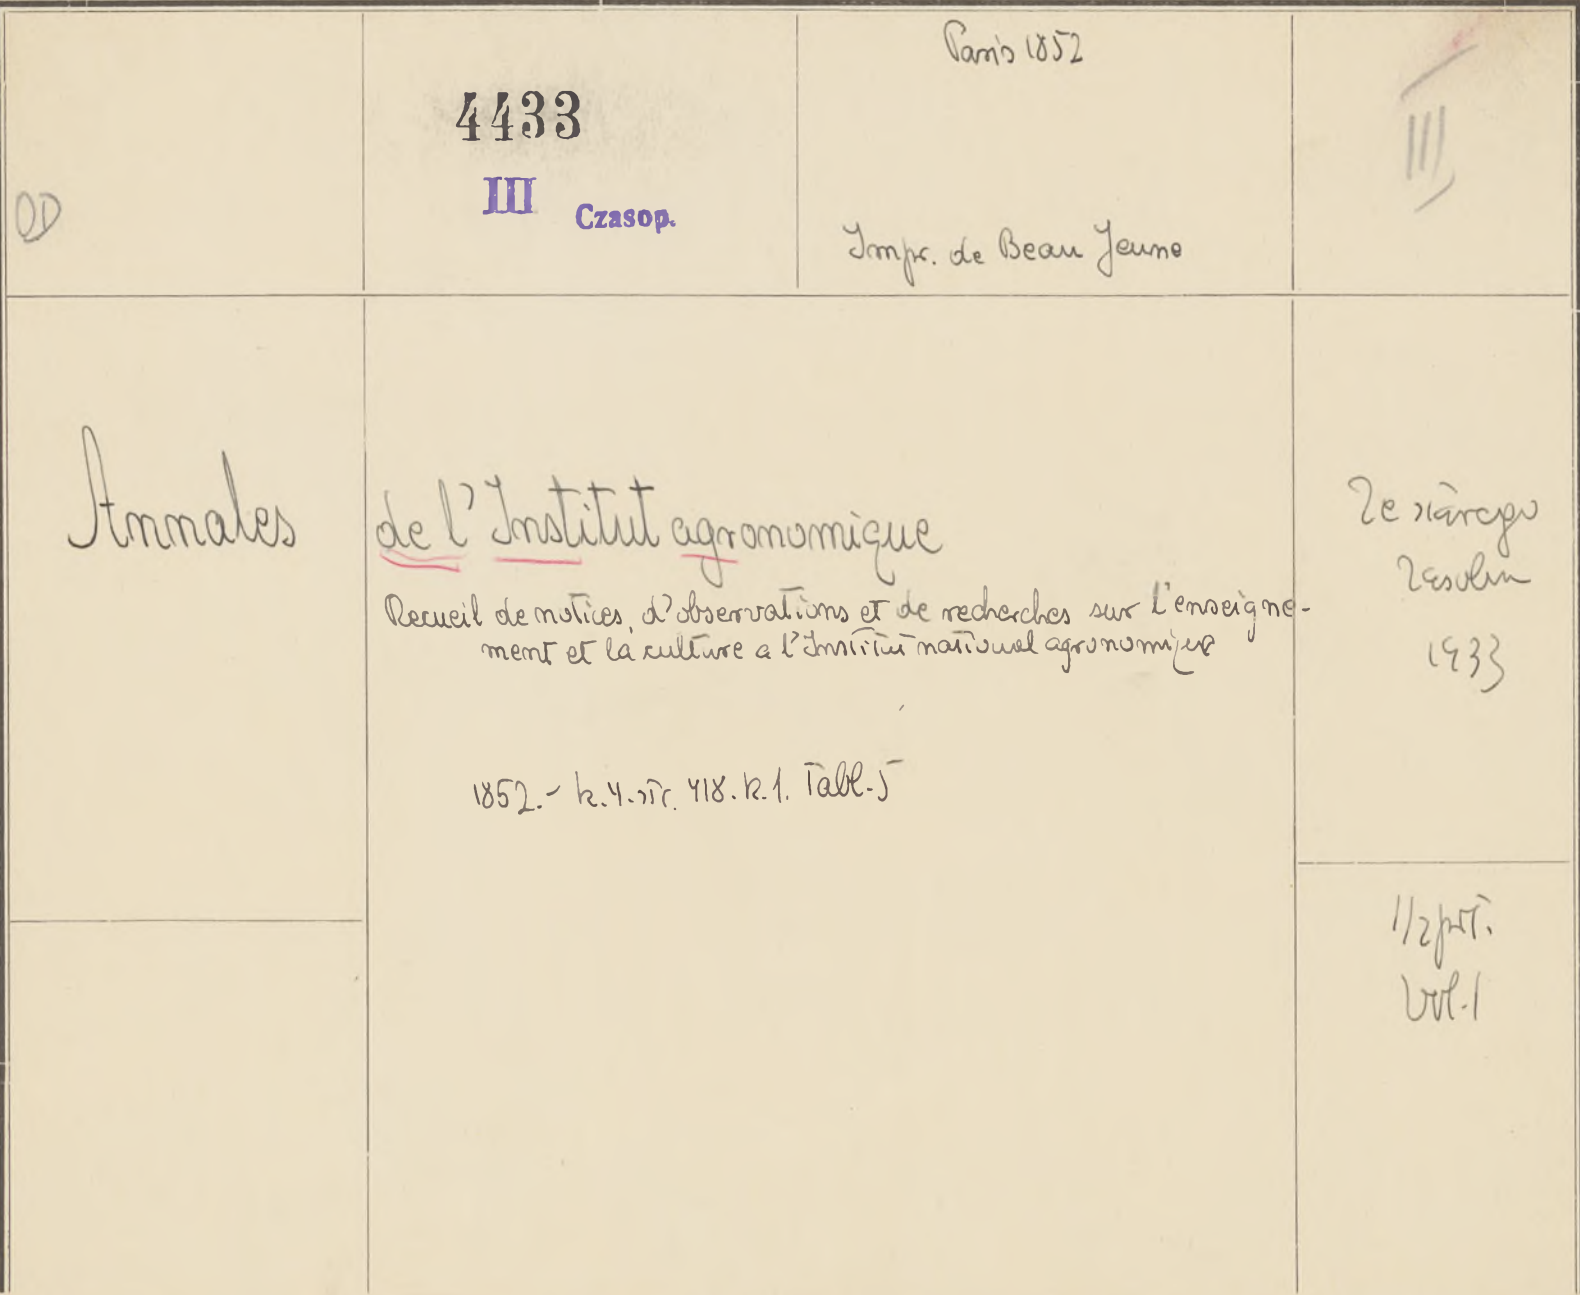 Paris 1852
4433
III Czasop.
III
OD
Impr. de Beau Jeune
Annales de l'Institut agronomique
Recueil de notices, d'observations et de recherches sur l'enseigne-
ment et la culture a l'Institut national agronomique
1852.- k.4. str. 418. k.1. Tabl. 5
Ze starego
zasobu
1933
1/2 prt.
Vol. 1